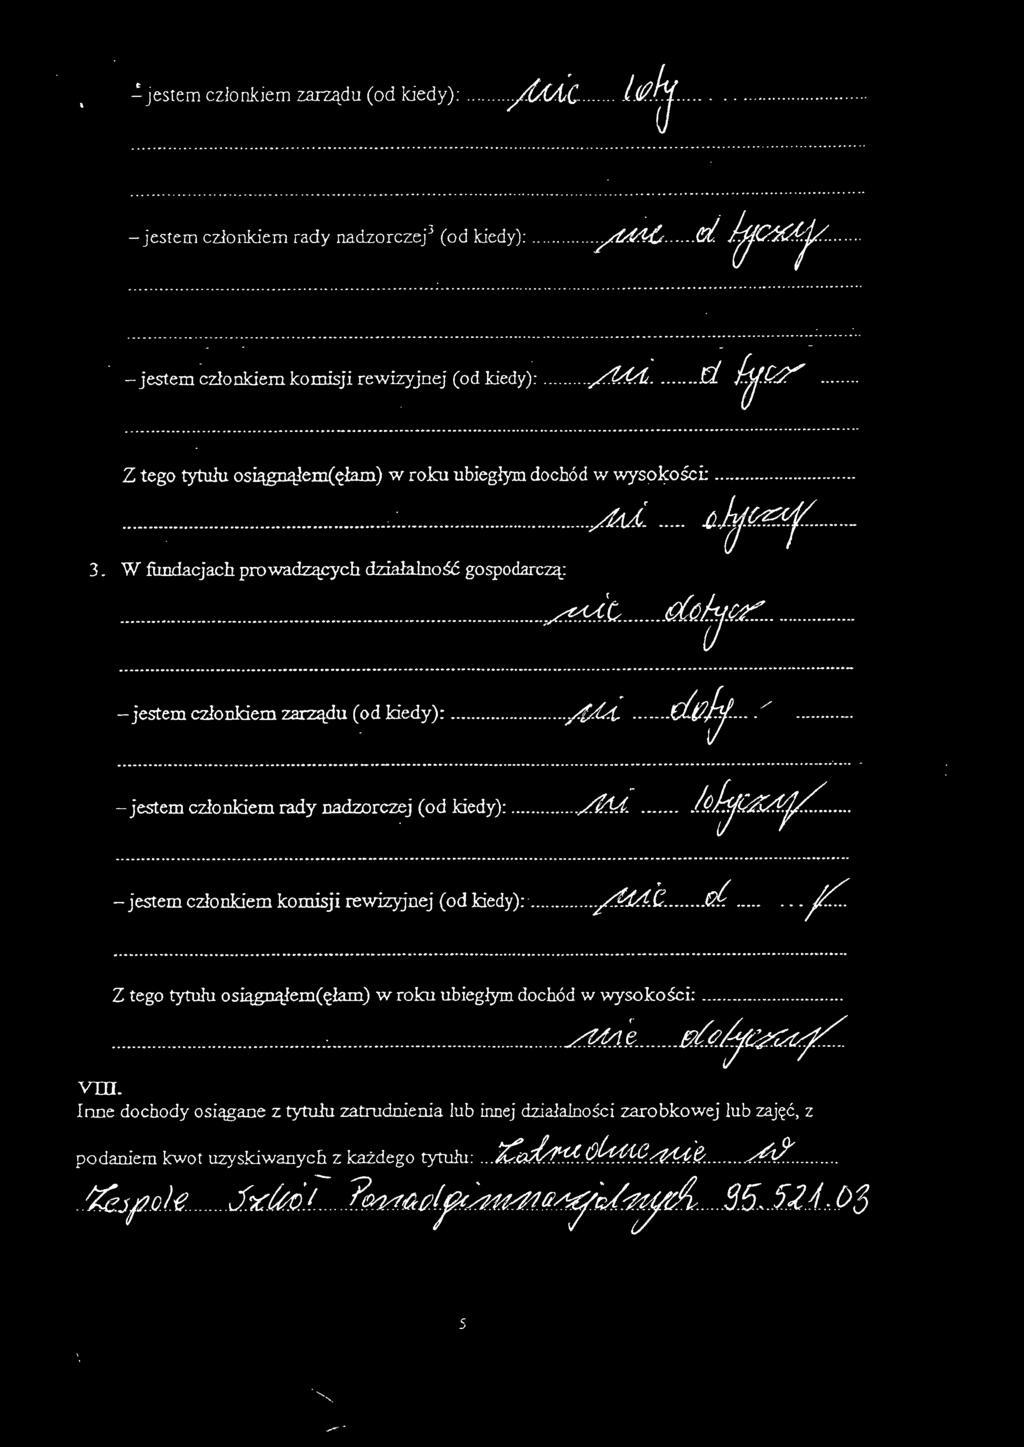 - jestem członkiem zarządu (od kiedy): ..........
- jestem członkiem rady nadzorczej³ (od kiedy): .......... nie d tyczy
- jestem członkiem komisji rewizyjnej (od kiedy): .......... ni d tycz
Z tego tytułu osiągnąłem(ęłam) w roku ubiegłym dochód w wysokości: ..........
.......... ni otyczy
3. W fundacjach prowadzących działalność gospodarczą:
.......... nie dotycz
- jestem członkiem zarządu (od kiedy): .......... ni doty
- jestem członkiem rady nadzorczej (od kiedy): .......... ni lotyczy
- jestem członkiem komisji rewizyjnej (od kiedy): .......... nie d
Z tego tytułu osiągnąłem(ęłam) w roku ubiegłym dochód w wysokości: ..........
.......... nie dotyczy
VIII.
Inne dochody osiągane z tytułu zatrudnienia lub innej działalności zarobkowej lub zajęć, z
podaniem kwot uzyskiwanych z każdego tytułu: ... Zatrudnienie w
Zespole Szkół Ponadgimnazjalnych 95.521.03
5